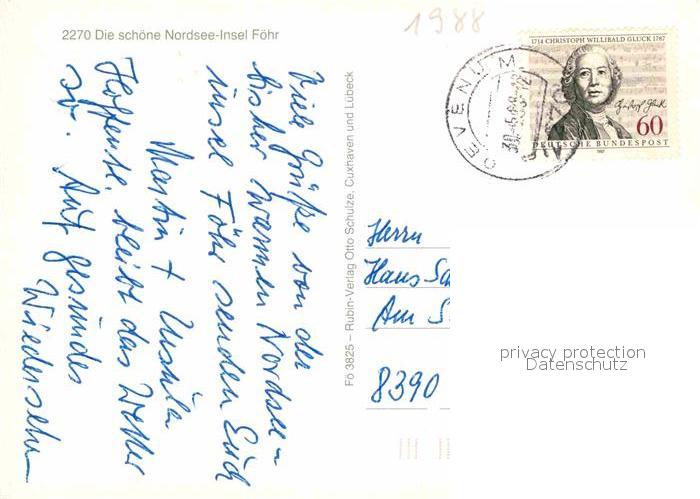 1988
2270 Die schöne Nordsee-Insel Föhr
Viele Grüße von der
bisher warmen Nordsee-
insel Föhr senden Euch
Martin + Ursula
Hoffentl. bleibt das Wetter
so. Auf gesundes
Wiedersehn
Fö 3825 – Rubin-Verlag Otto Schulze, Cuxhaven und Lübeck
1714 CHRISTOPH WILLIBALD GLUCK 1787
60
DEUTSCHE BUNDESPOST
OEVENUM
Herrn
Hans
Am
8390
privacy protection
Datenschutz